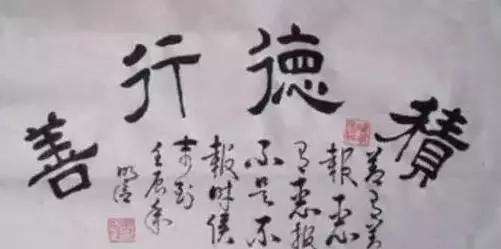 積德行善
善有善
報惡
有惡報
不是不
報時侯
未到
壬辰年